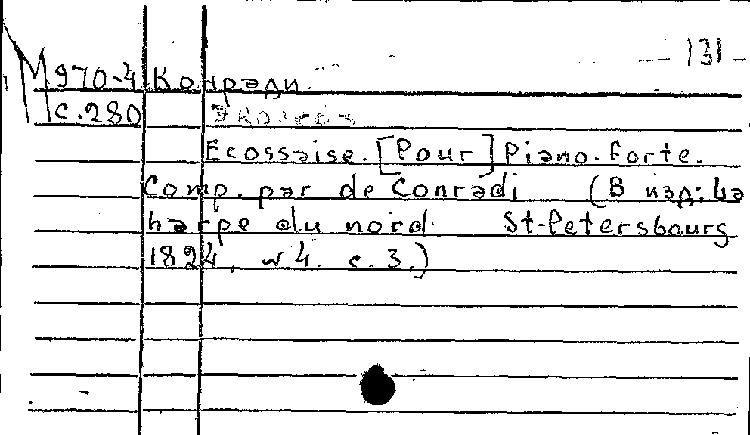 — 131 —
М 970-4 Конради.
с. 280 Экосез
Ecossaise. [Pour] Piano-forte.
Comp. par de Conradi (В изд: La
harpe du nord. St-Petersbourg
1824, № 4. с. 3.)